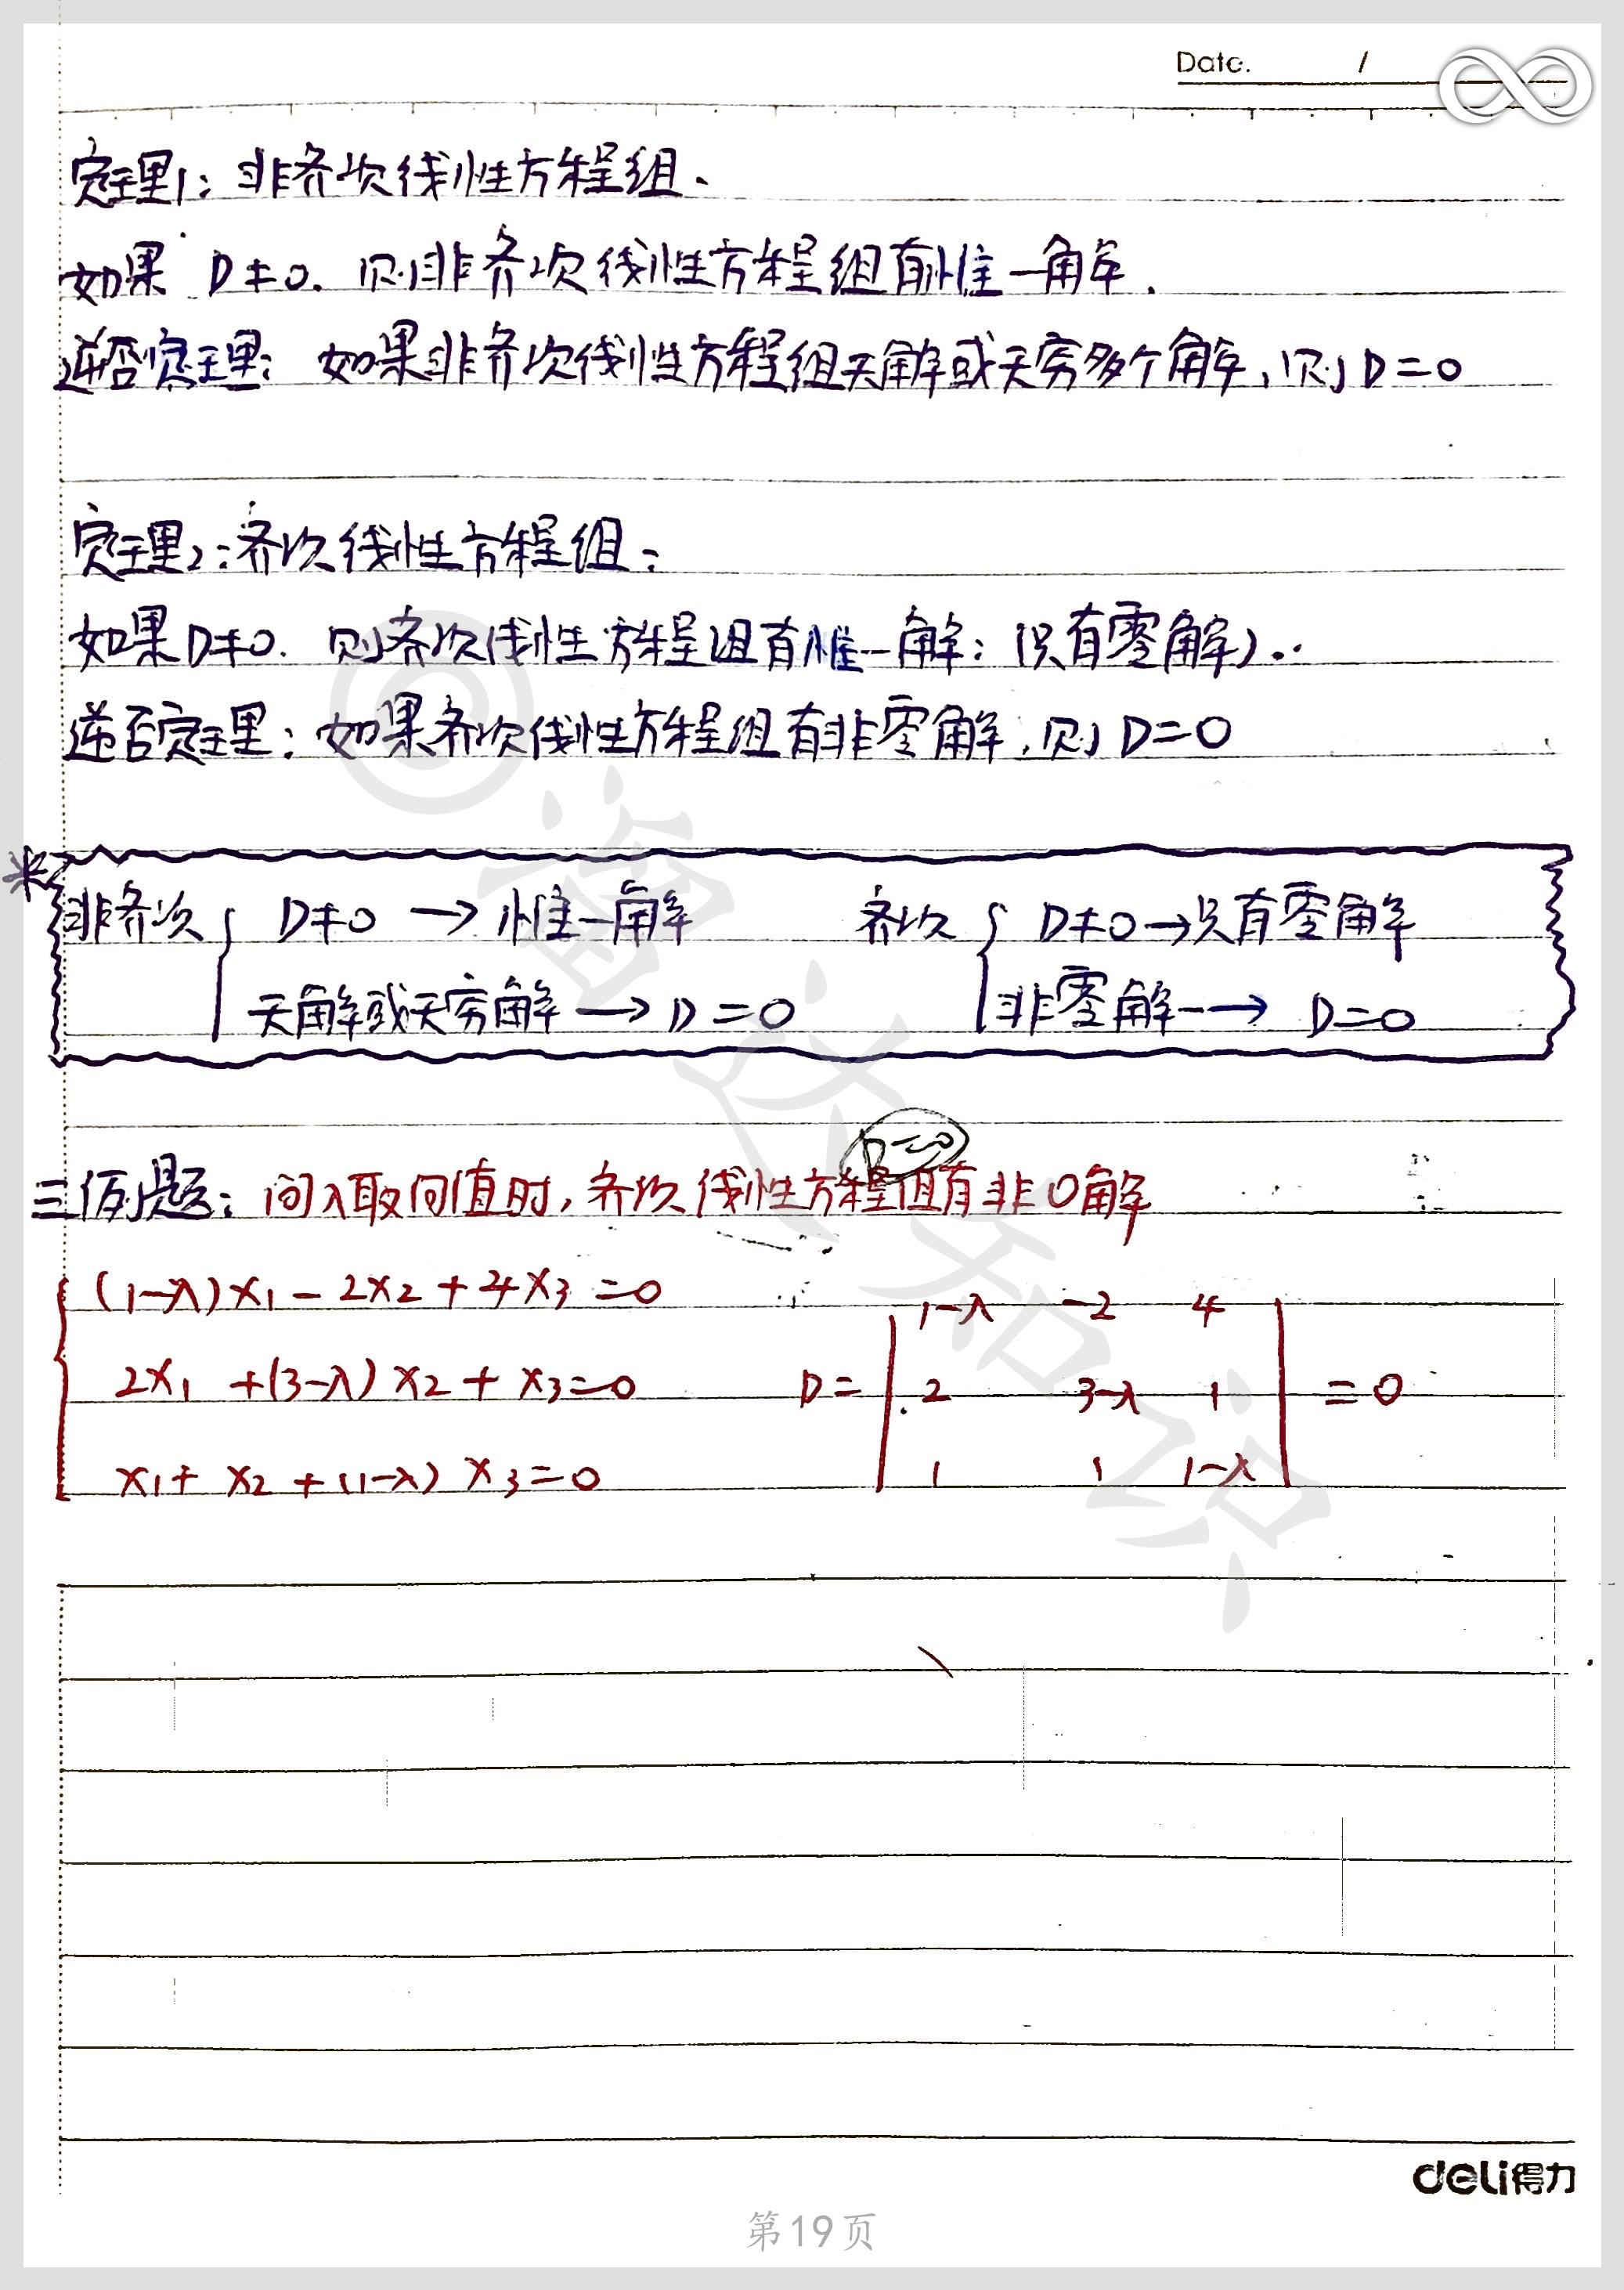 Date. /
定理1：非齐次线性方程组.
如果 D≠0. 则非齐次线性方程组有惟一解.
逆否定理：如果非齐次线性方程组无解或无穷多个解，则D=0
定理2：齐次线性方程组：
如果D≠0. 则齐次线性方程组有惟一解：（只有零解）..
逆否定理：如果齐次线性方程组有非零解，则D=0
※ 非齐次 { D≠0 → 惟一解 齐次 { D≠0→只有零解
无解或无穷解 → D=0 非零解 → D=0
D=0
三例题：问λ取何值时，齐次线性方程组有非0解
(1-λ)x₁-2x₂+4x₃=0
2x₁+(3-λ)x₂+x₃=0
x₁+x₂+(1-λ)x₃=0
D= | 1-λ -2 4 |
| 2 3-λ 1 | =0
| 1 1 1-λ |
deli得力
第19页